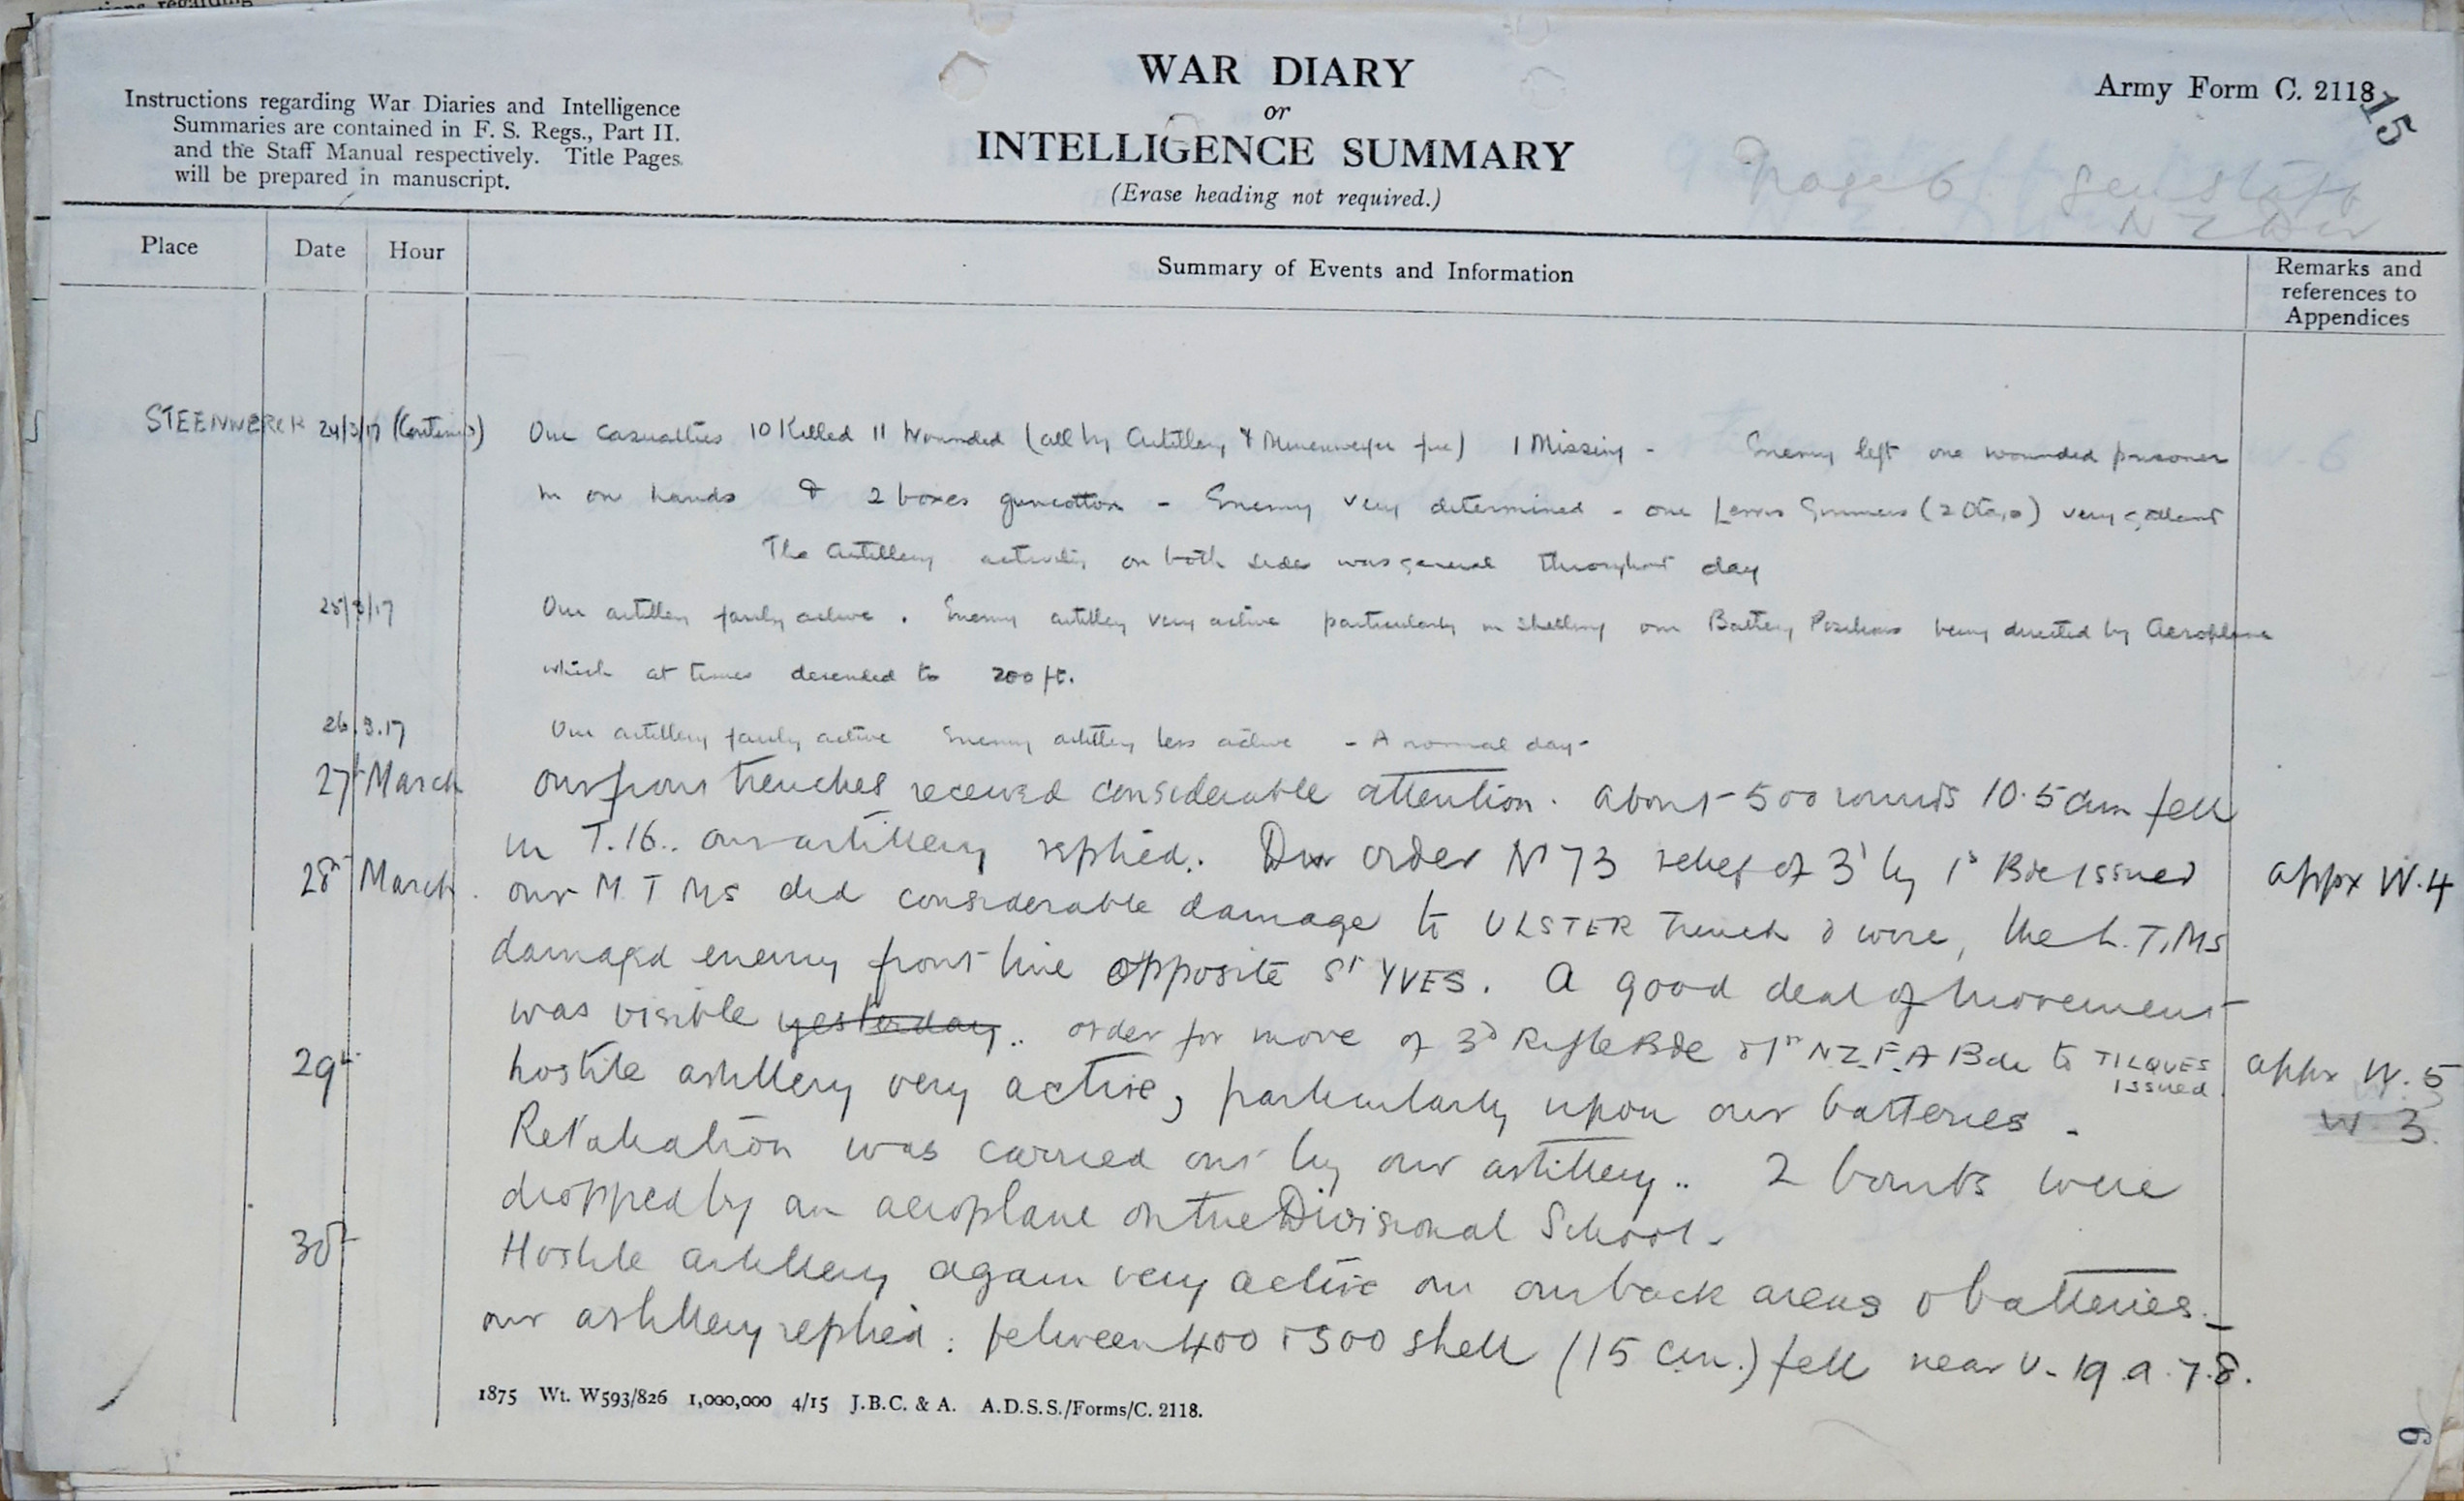 Instructions regarding War Diaries and Intelligence
Summaries are contained in F. S. Regs., Part II.
and the Staff Manual respectively. Title Pages
will be prepared in manuscript.
WAR DIARY
or
INTELLIGENCE SUMMARY
(Erase heading not required.)
Army Form C. 2118
15
Page 6 Gen Staff
N Z Div
Place Date Hour Summary of Events and Information Remarks and
references to
Appendices
STEENWERCK 24/3/17 (Continued) Our casualties 10 Killed 11 Wounded (all by Artillery & Minenwerfer fire) 1 Missing - Enemy left one wounded prisoner
in our hands & 2 boxes guncotton - Enemy very determined - our Lewis Gunners (2 Otago) very gallant
The Artillery activity on both sides was general throughout day
25/3/17 Our artillery fairly active. Enemy artillery very active particularly in shelling our Battery Positions being directed by Aeroplane
which at times descended to 200 ft.
26.3.17 Our artillery fairly active Enemy artillery less active - A normal day -
27t March our front trenches received considerable attention. about 500 rounds 10.5 cm fell
in T.16.. our artillery replied. Div order No 73 relief of 3d by 1st Bde issued appx W.4
28t March. our M T Ms did considerable damage to ULSTER Trench & wire, the L.T.Ms
damaged enemy front line opposite St YVES. A good deal of movement
was visible yesterday.. order for move of 3d Rifle Bde & 1st N.Z.F.A Bde to TILQUES
issued appx W.5
29t hostile artillery very active, particularly upon our batteries.
W.3.
Retaliation was carried out by our artillery.. 2 bombs were
dropped by an aeroplane on the Divisional School.
30t Hostile artillery again very active on our back areas & batteries.
our artillery replied: between 400 & 500 shell (15 cm.) fell near U.19.a.7.8.
1875 Wt. W593/826 1,000,000 4/15 J.B.C. & A. A.D.S.S./Forms/C. 2118.